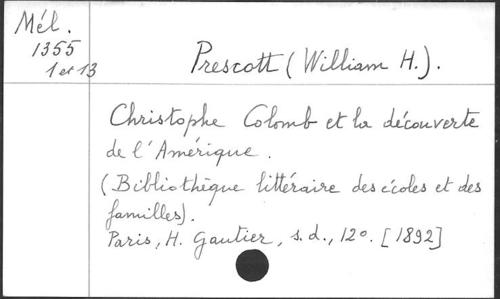 Mél.
1355
1 et 13
Prescott (William H.).
Christophe Colomb et la découverte
de l'Amérique.
(Bibliothèque littéraire des écoles et des
familles).
Paris, H. Gautier, s.d., 12º. [1892]